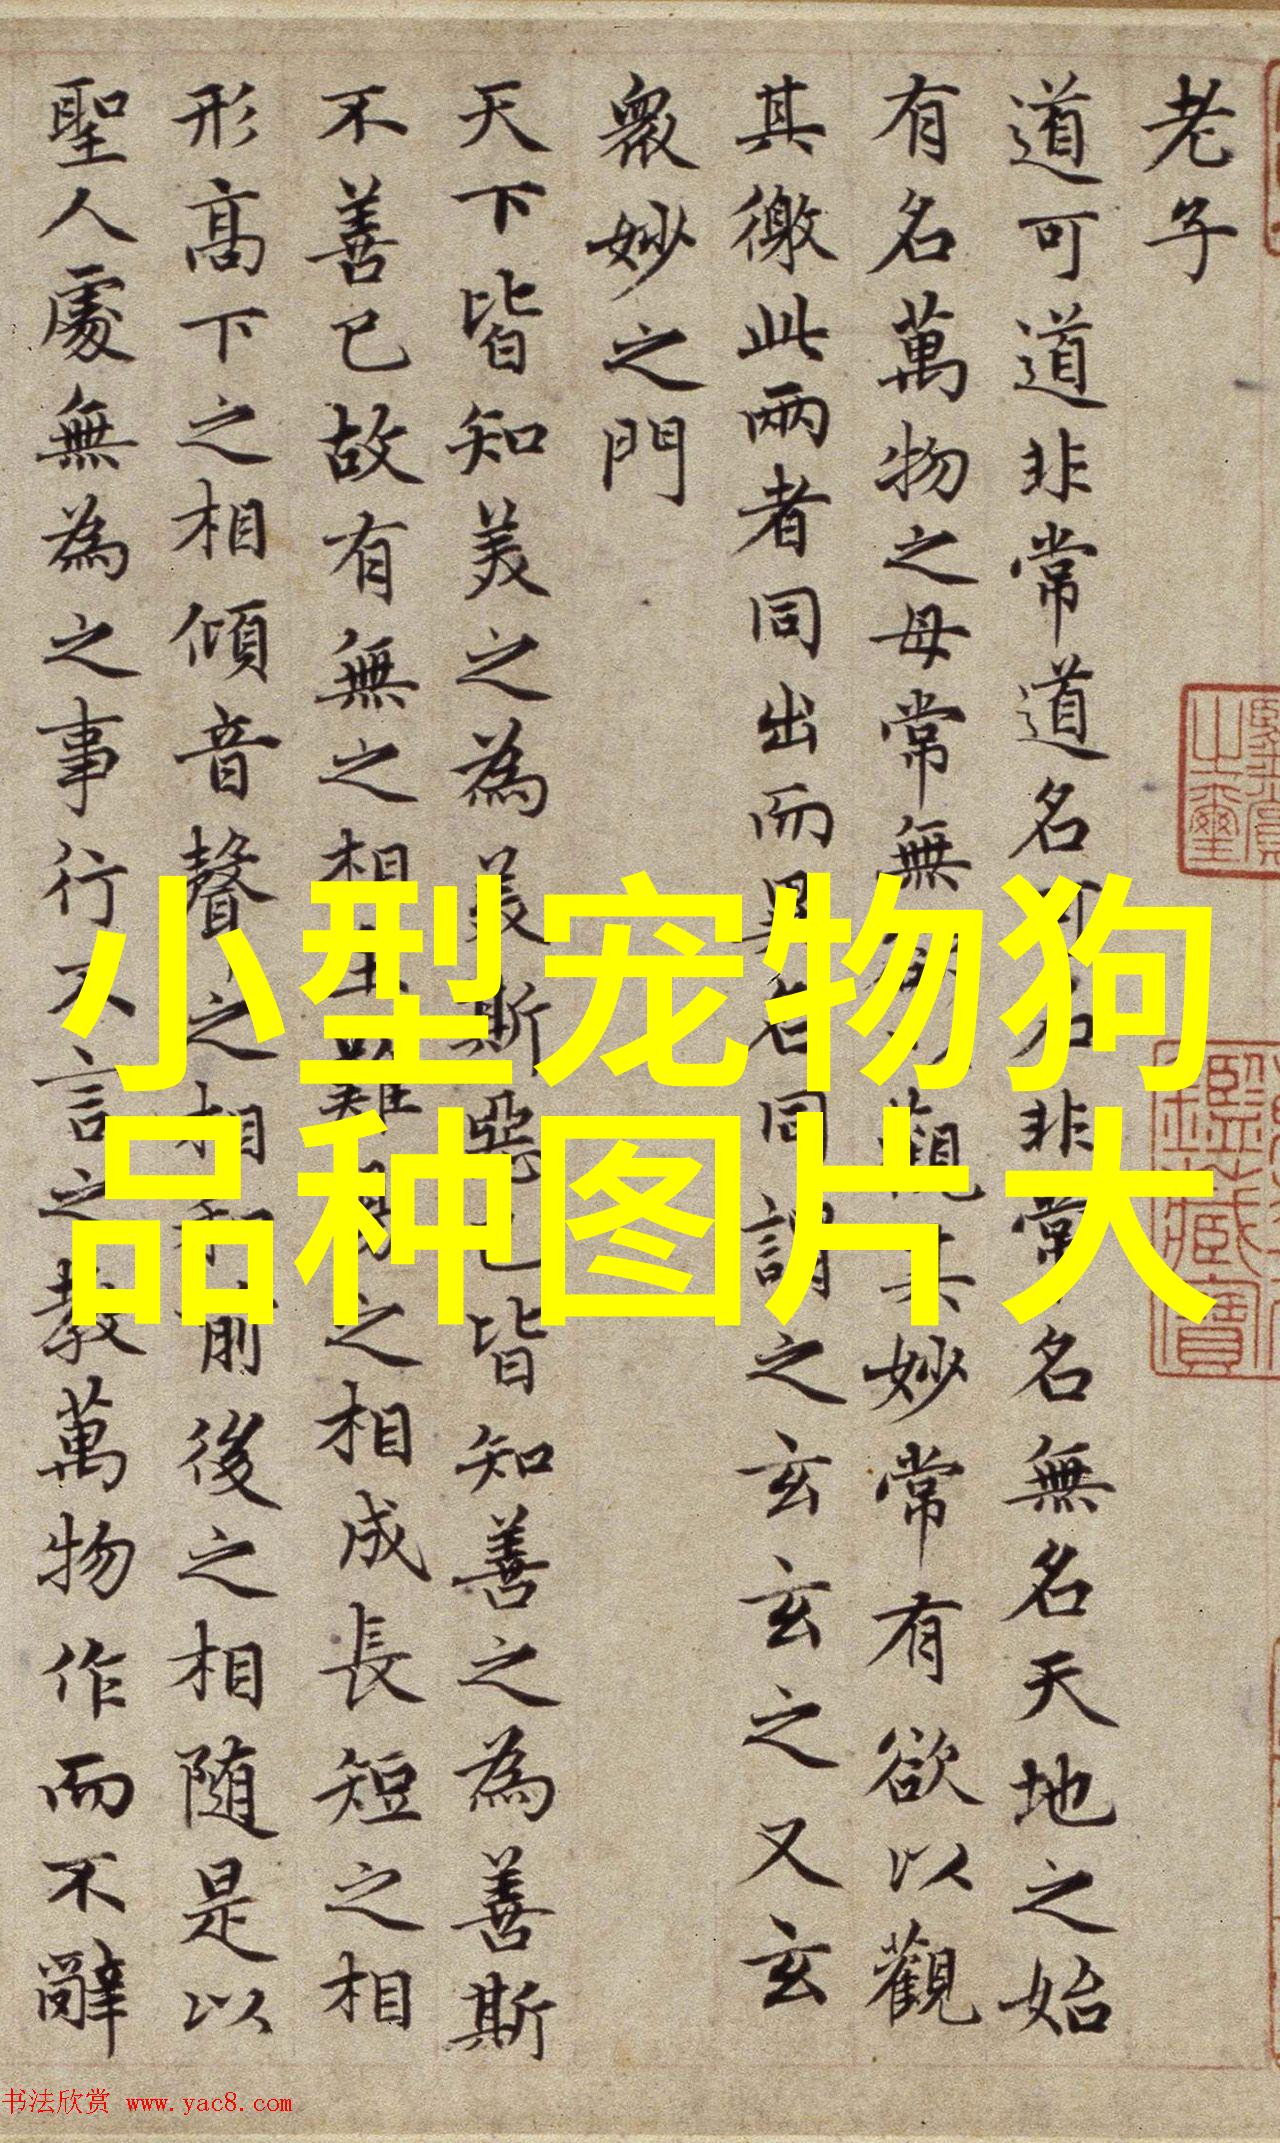 老子
道可道非常道名可名非常名無名天地之始
有名萬物之母常無欲以觀其妙常有欲以觀
其徼此兩者同出而異名同謂之玄玄之又玄
衆妙之門
天下皆知美之為美斯惡已皆知善之為善斯
不善已故有無之相生難易之相成長短之相
形高下之相傾音聲之相和前後之相随是以
聖人處無為之事行不言之教萬物作而不辭
小型宠物狗
品种图片大
书法欣赏 www.yac8.com